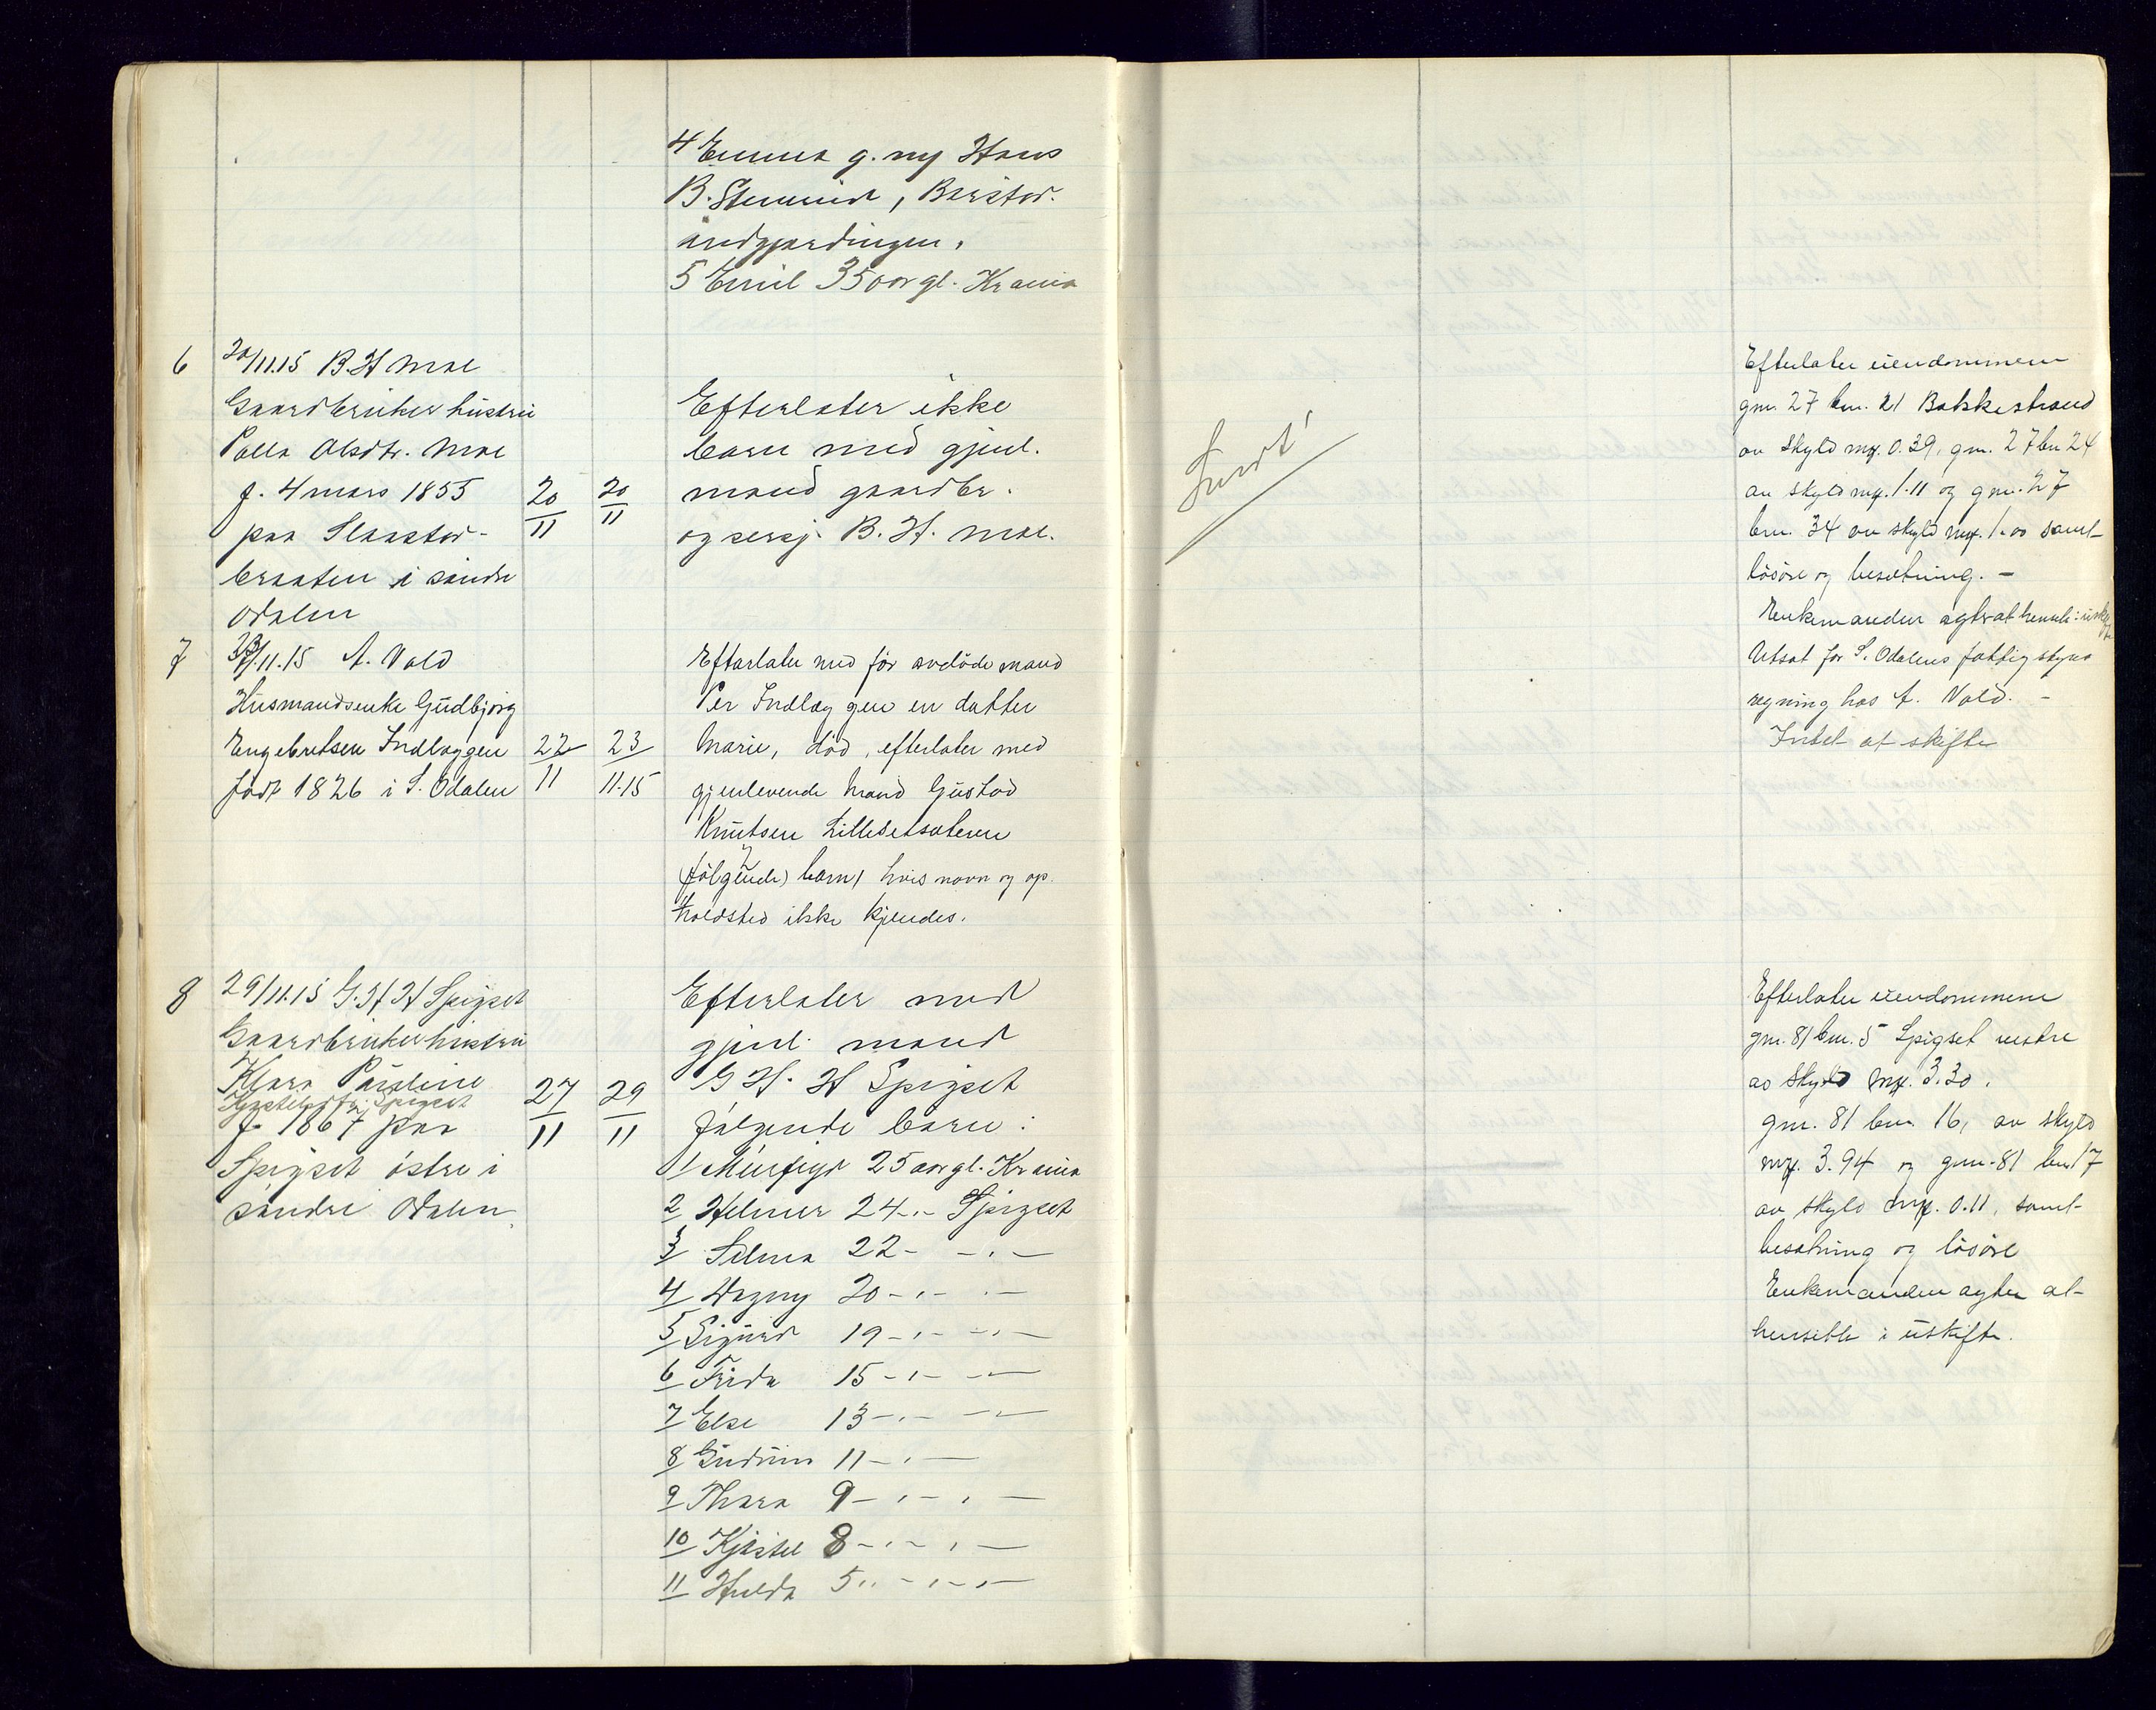 4 Emma g. m/ Hans
B. Stemmer, Barstad.
5 Emil 35 aar gl. Krania
6
20/11.15 B. H Moe
Gaardbruker hustru
Olsdtr. Moe
f. 4 mars 1855
paa Slaastad-
braaten i søndre
Odalen
20/11
20/11
Efterlater ikke
barn med gjenl.
mand gaardbr.
og sersj. B. H. Moe.
Efterlater eiendommene
gnr. 27 bnr. 21 Bakkestrand
av skyld mrk. 0.39, gnr. 27 bnr 24
av skyld mrk. 1.11 og gnr. 27
bnr. 34 av skyld mrk. 1.00 samt
løsøre og besætning. –
Enkemanden agter at hensitte i uskifte
7
23/11.15 A. Vold
Husmandsenke Gudbjørg
Engebretsen Indlæggen
født 1826 i S. Odalen
22/11
23/11.15
Efterlater med før avdøde mand
Per Indlæggen en datter
Marie, død, efterlater med
gjenlevende mand Gustav
Knutsen Lillesetsæteren
(følgende) 2 barn, hvis navn og op
holdsted ikke kjendes.
Utsat for S. Odalens fattigstyres
regning hos A. Vold. –
Intet at skifte
8
29/11.15 G. H H Spigset
Gaardbruker hustru
Klara Pauline
Kjøstelsdtr. Spigset
f. 1867 paa
Spigset østre i
søndre Odalen
27/11
29/11
Efterlater med
gjenl. mand
G H. H Spigset
følgende barn:
1/ 25 aar gl. Krania
2/ Helmer 24 -"- Spigset
3/ Selma 22 - -"-
4/ Dagny 20 -"- -"-
5/ Sigurd 19 -"- -"-
6/ Frida 15 -"- -"-
7/ Else 13 -"- -"-
8/ Gudrun 11 -"-
9/ Thora 9 -"- -"-
10/ Kjøstel 8 -"- -"-
11/ Hulda 5 -"- -"-
Efterlater eiendommene
gnr. 81 bnr. 5 Spigset vestre
av skyld mrk. 3.30.
gnr. 81 bnr. 16, av skyld
mrk. 3.94 og gnr. 81 bnr 17
av skyld mrk. 0.11, samt
besætning og løsøre
Enkemanden agter at
hensitte i uskifte.